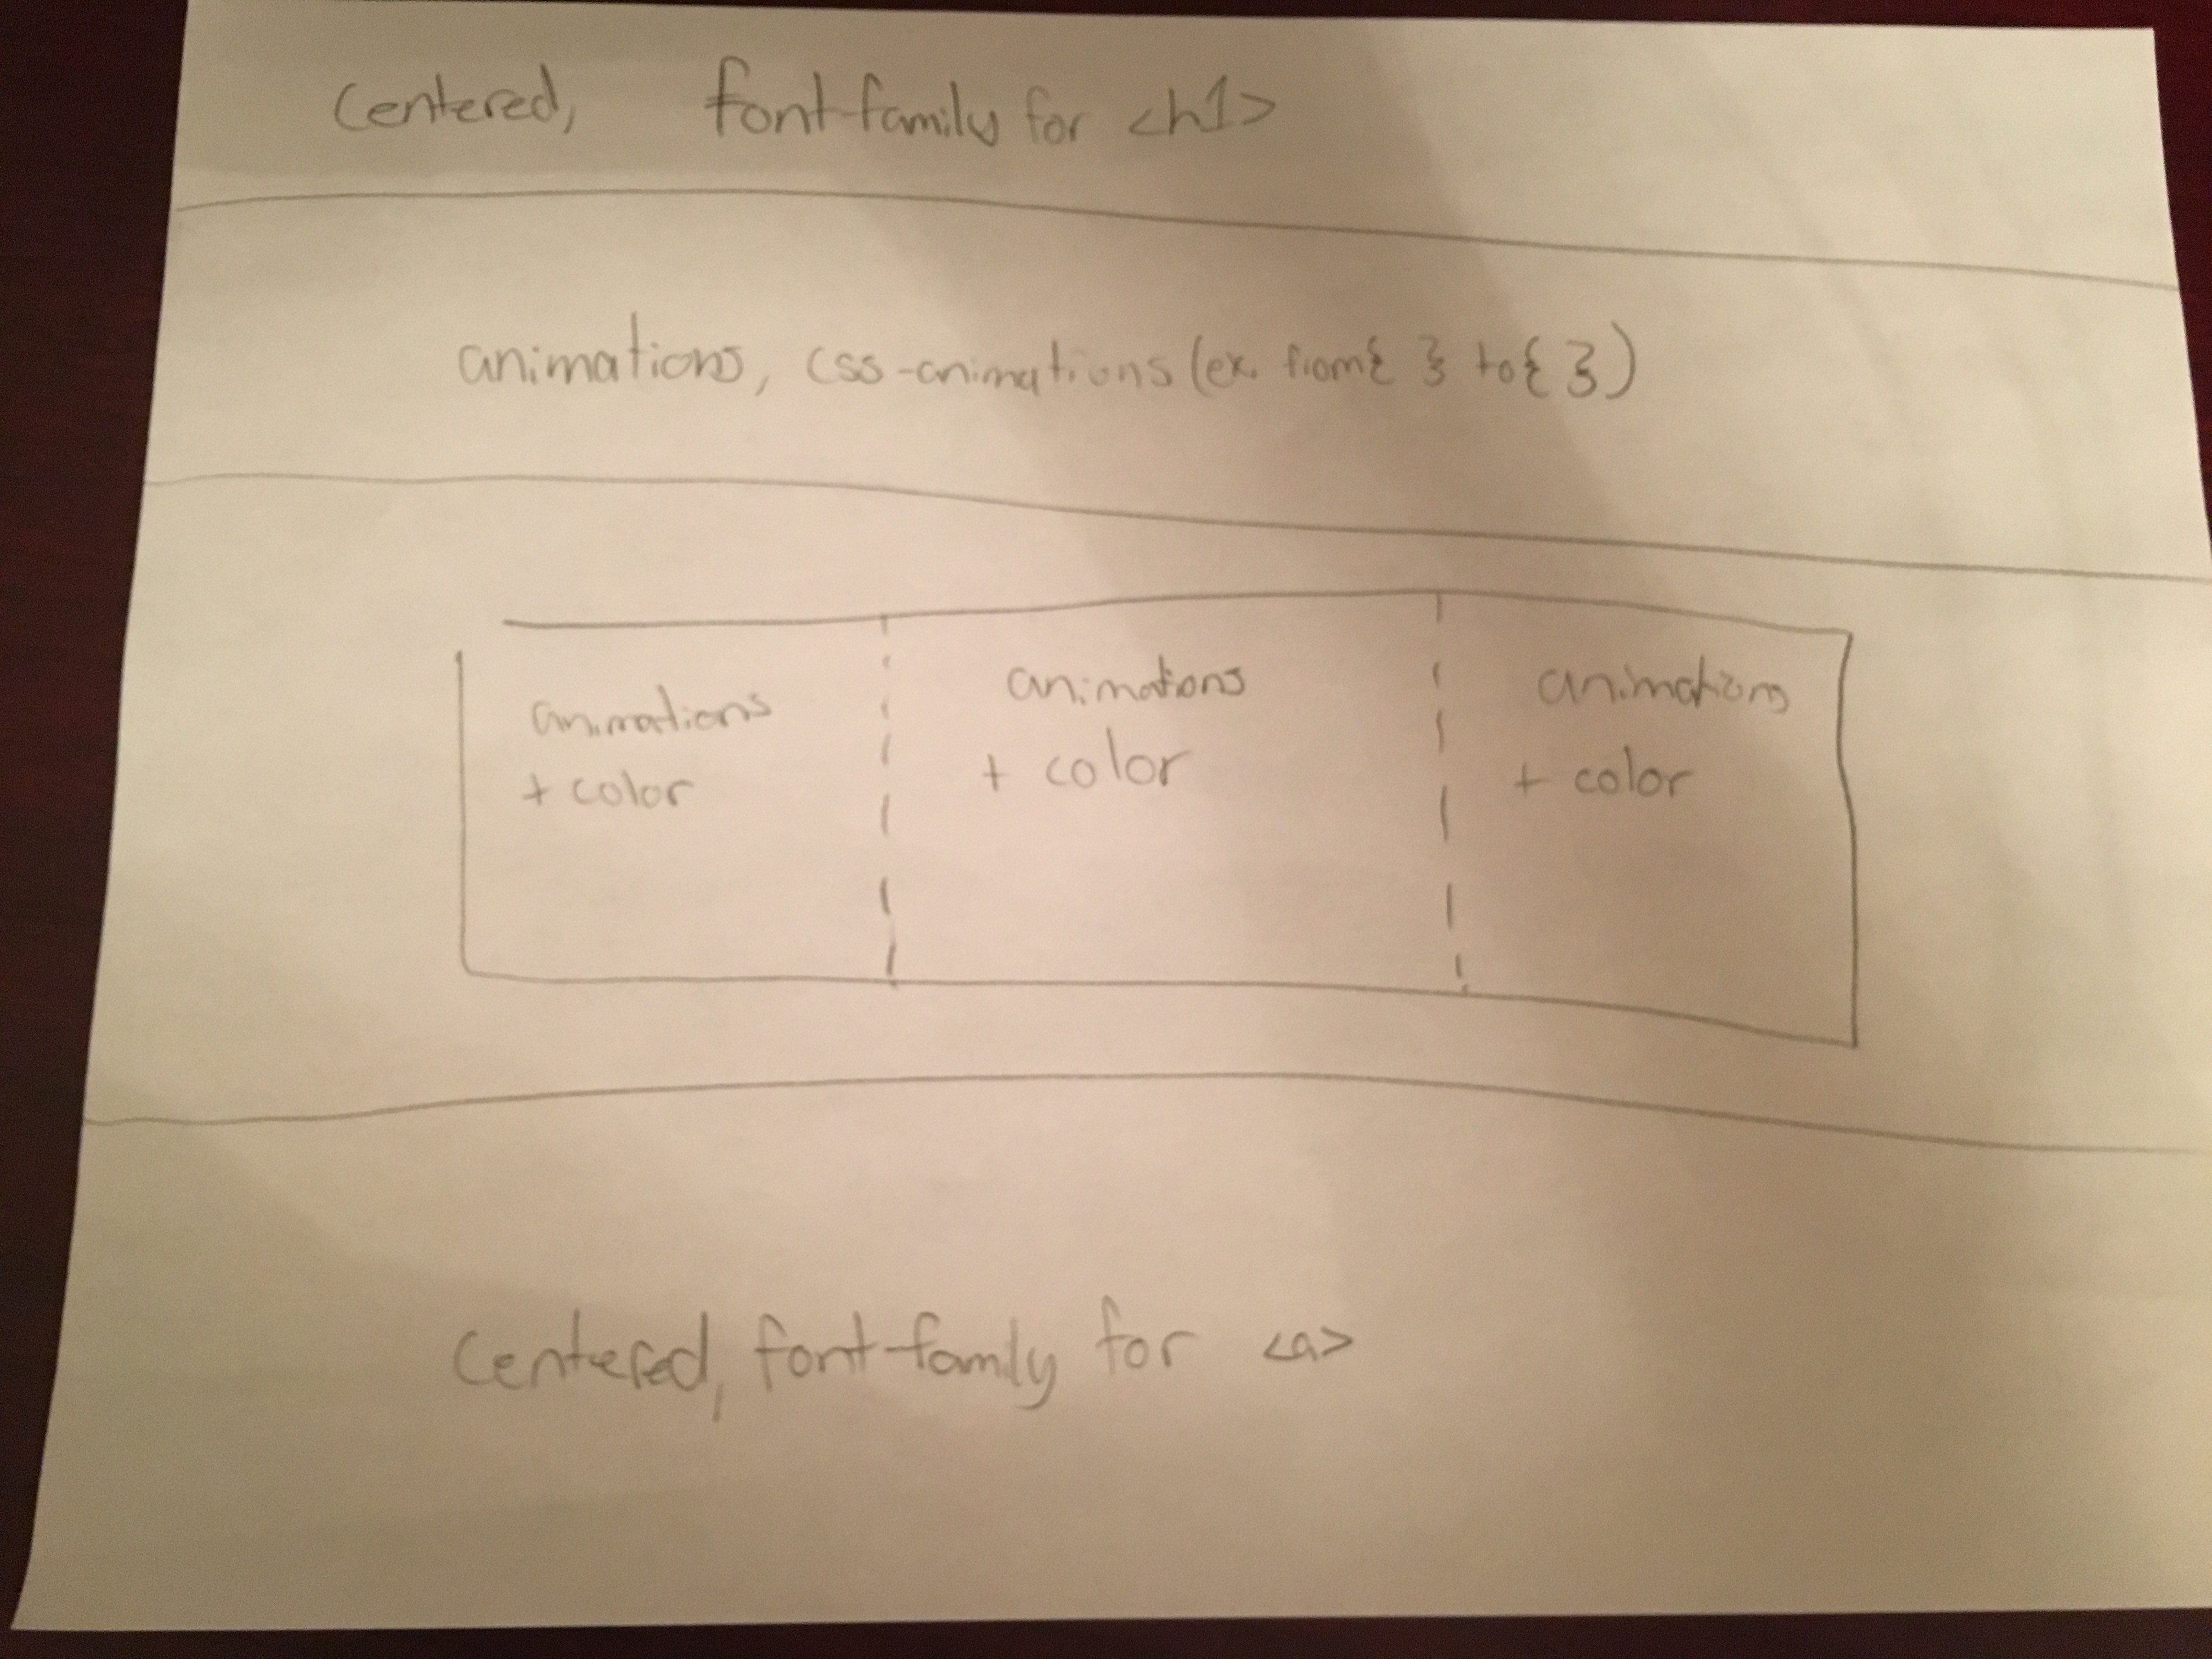 Centered, font-family for <h1>
animations, css-animations (ex. from{ } to{ })
animations
+ color
animations
+ color
animations
+ color
Centered, font-family for <a>